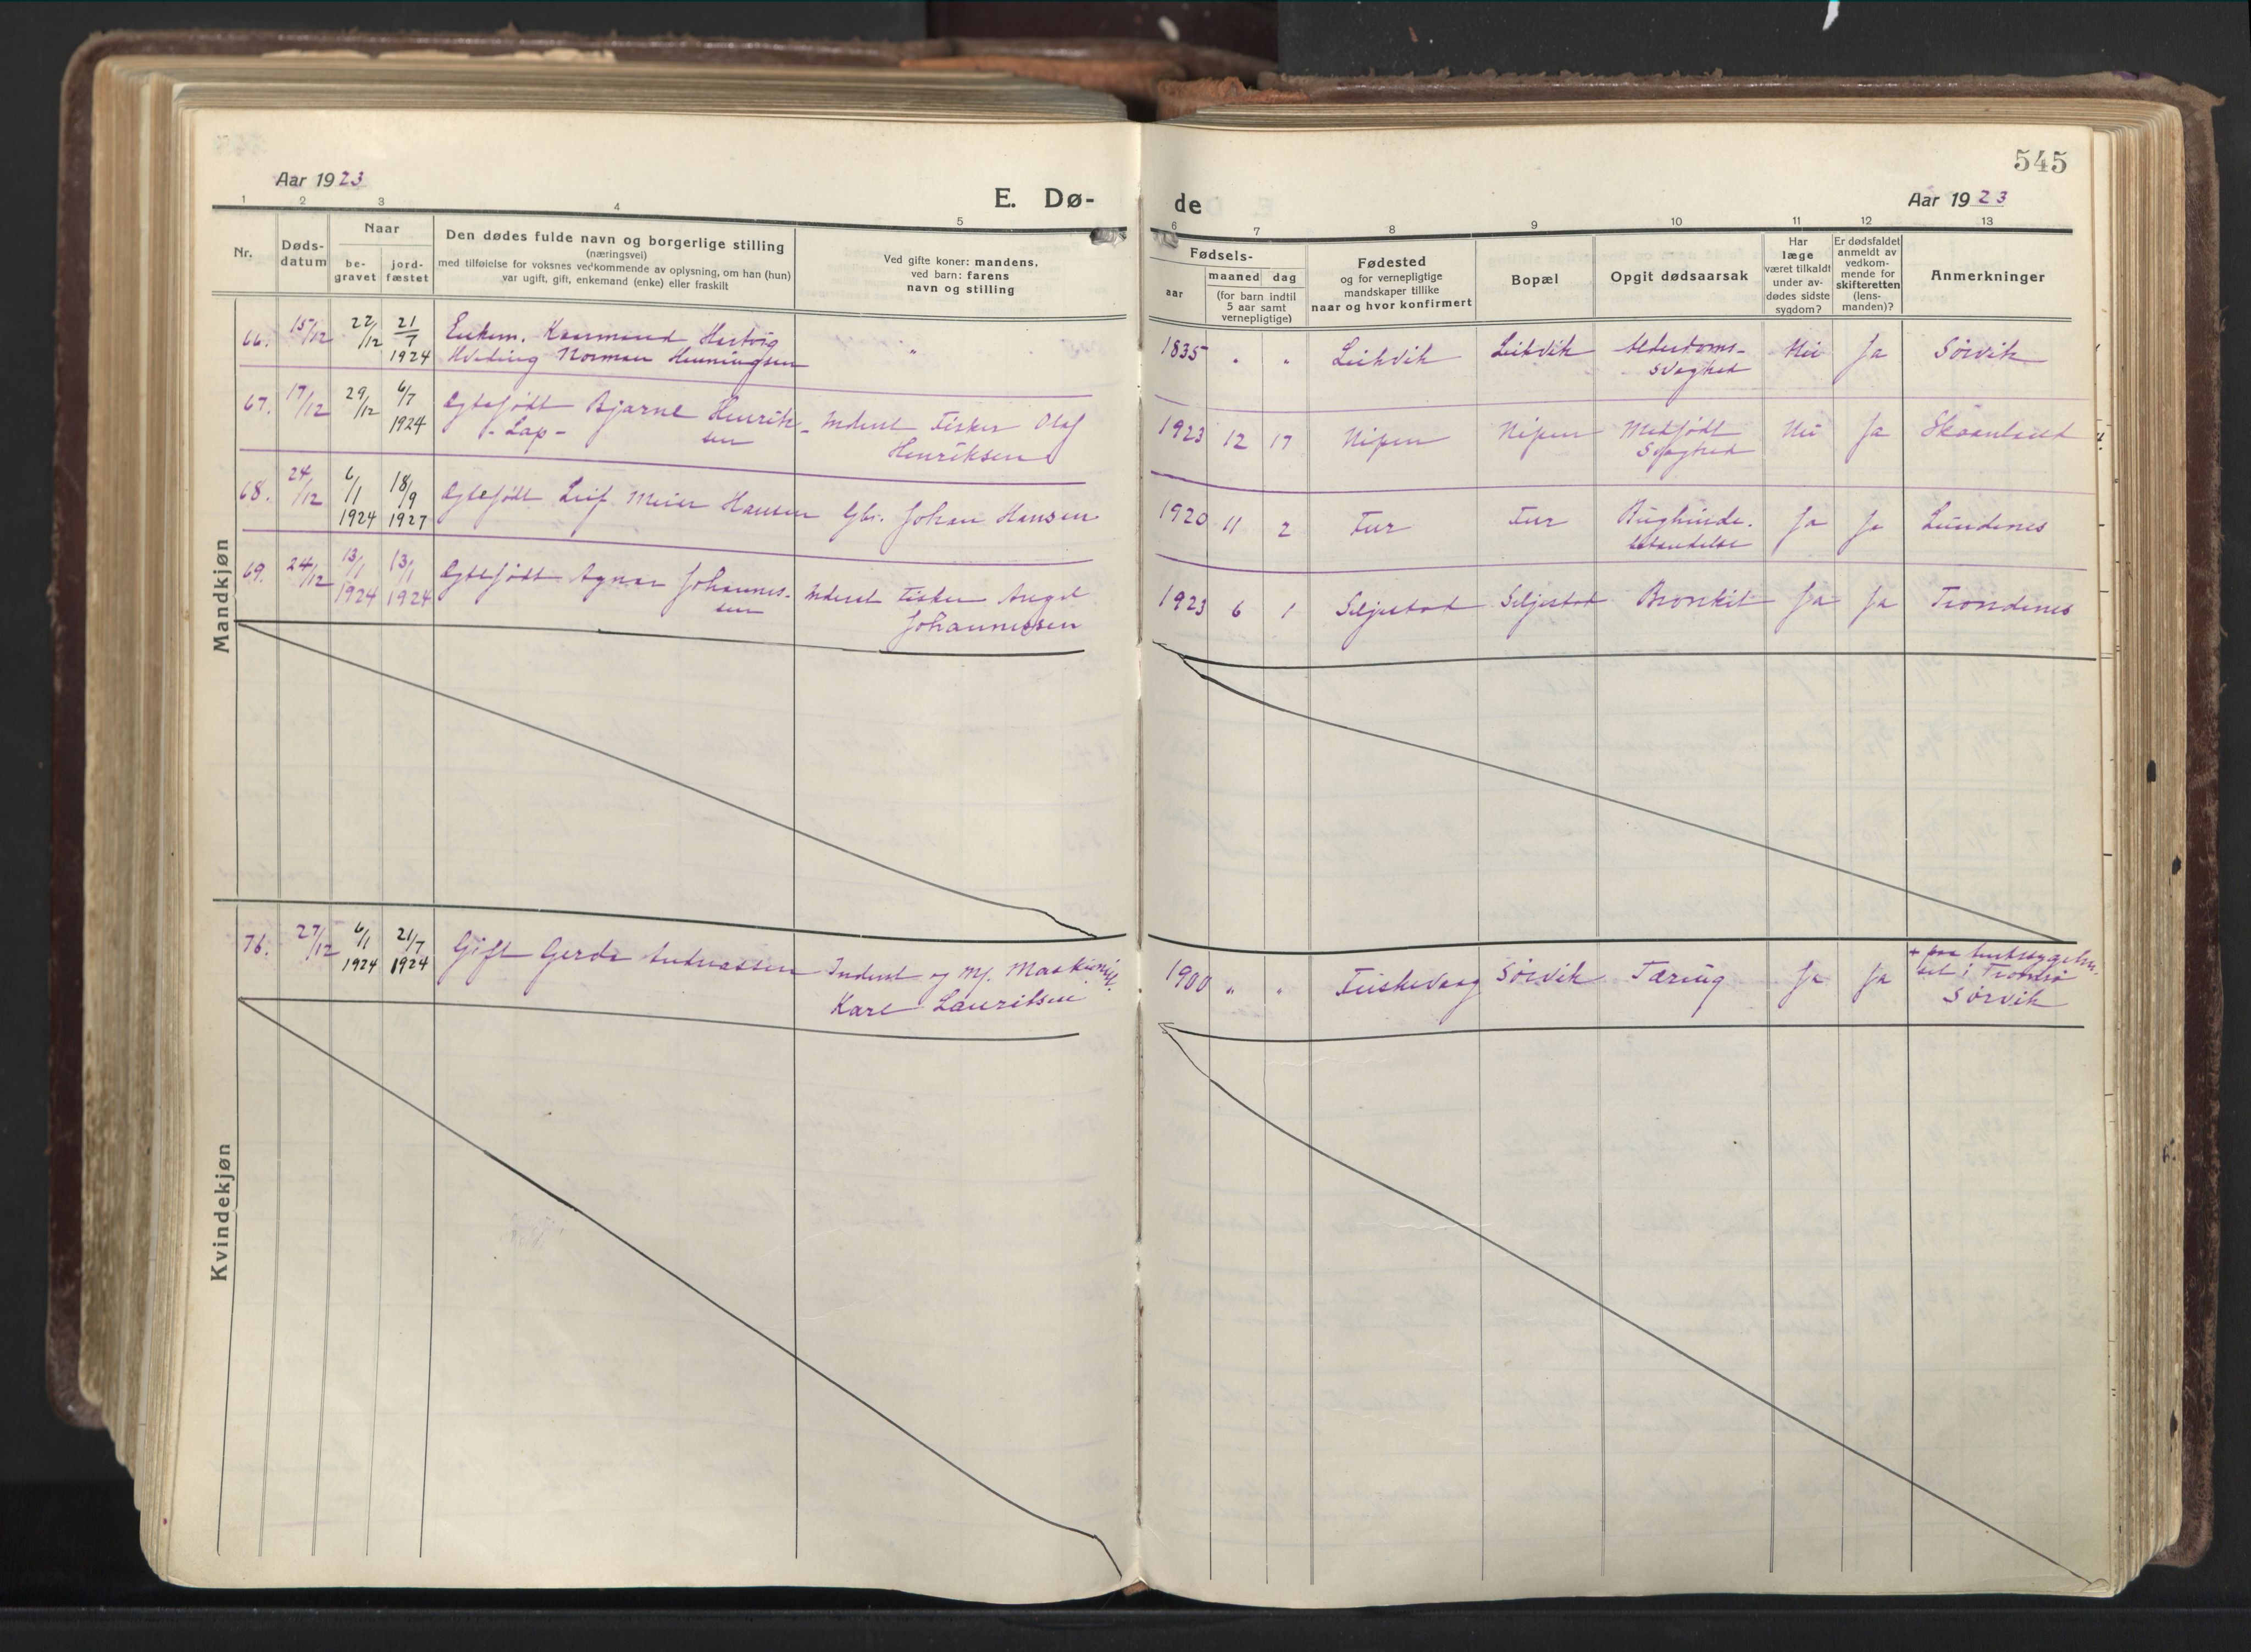 545
Aar 1923
E. Dø-
de
Aar 1923
1 2 3 4 5 6 7 8 9 10 11 12 13
Nr.
Døds-
datum
Naar
be-
gravet
jord-
fæstet
Den dødes fulde navn og borgerlige stilling
(næringsvei)
med tilføielse for voksnes vedkommende av oplysning, om han (hun)
var ugift, gift, enkemand (enke) eller fraskilt
Ved gifte koner: mandens,
ved barn: farens
navn og stilling
Fødsels-
aar
maaned dag
(for barn indtil
5 aar samt
vernepligtige)
Fødested
og for vernepligtige
mandskaper tillike
naar og hvor konfirmert
Bopæl
Opgit dødsaarsak
Har
læge
været tilkaldt
under av-
dødes sidste
sygdom?
Er dødsfaldet
anmeldt av
vedkom-
mende for
skifteretten
(lens-
manden)?
Anmerkninger
Mandkjøn
66. 15/12 22/12 21/7 1924
Enkem. Hartvig
Hveding Norman Henningsen
"
1835 " " Leikvik Leikvik Alderdoms-
svaghed
Nei Ja Sørvik
67. 17/12 29/12 6/7 1924
Egtefødt Bjarne Henrik-
sen
- Lap -
Inderst Fisker Olaf
Henriksen
1923 12 17 Nipen Nipen Medfødt
Svaghed
Nei Ja Skaanland
68. 24/12 6/1 1924 18/9 1927
Egtefødt Leif Meier Hansen
Gbr. Johan Hansen
1920 11 2 Fur Fur Bughinde-
betændelse
Ja Ja Lundenes
69. 24/12 13/1 1924 13/1 1924
Egtefødt Agnar Johannes-
sen
Inderst Fisker Angel
Johannessen
1923 6 1 Seljestad Seljestad Bronkit Ja Ja Trondenes
Kvindekjøn
76. 27/12 6/1 1924 21/7 1924
Gift Gerda Andreassen
Inderst og Mf. Maskinist
Karl Lauritsen
1900 " " Fuiskevaag Sørvik Tæring Ja Ja
+ paa
set i Tromsø
Sørvik